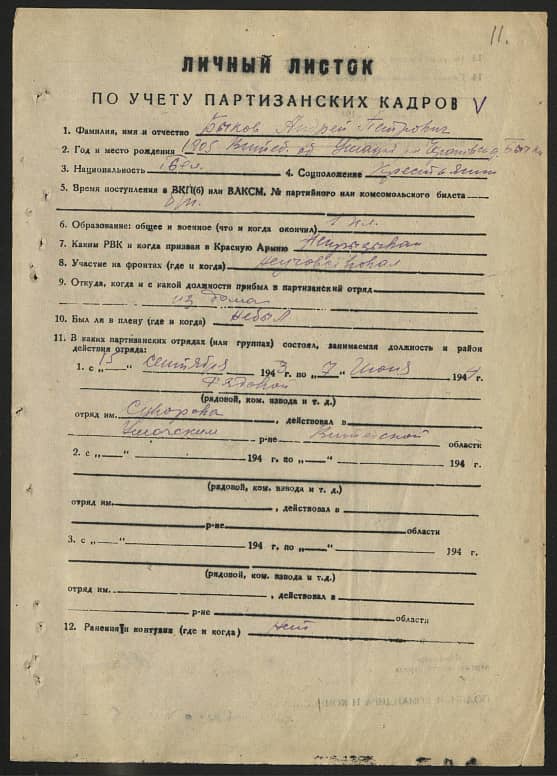 11.
ЛИЧНЫЙ ЛИСТОК
ПО УЧЕТУ ПАРТИЗАНСКИХ КАДРОВ V
1. Фамилия, имя и отчество Быков Андрей Петрович
2. Год и место рождения 1905 Витеб. об Ушацки
3. Национальность бел. 4. Соцположение Крестьянин
5. Время поступления в ВКП(б) или ВЛКСМ, № партийного или комсомольского билета
б/п.
6. Образование: общее и военное (что и когда окончил) 1 кл.
7. Каким РВК и когда призван в Красную Армию Непризывал
8. Участие на фронтах (где и когда) Неучовствовал
9. Откуда, когда и с какой должности прибыл в партизанский отряд
из дома
10. Был ли в плену (где и когда) Небыл
11. В каких партизанских отрядах (или группах) состоял, занимаемая должность и район
действия отряда:
1. с „15" сентября 1943 г. по „7" Июня 1944 г.
Рядовой
(рядовой, ком. взвода и т. д.)
отряд им. Суворова, действовал в
Ушачским р-не Витебской области
2. с „ " 194 г. по „ " 194 г.
(рядовой, ком. взвода и т. д.)
отряд им. , действовал в
р-не области
3. с „ " 194 г. по „ " 194 г.
(рядовой, ком. взвода и т.д.)
отряд им. , действовал в
р-не области
12. Ранения и контузия (где и когда) нет